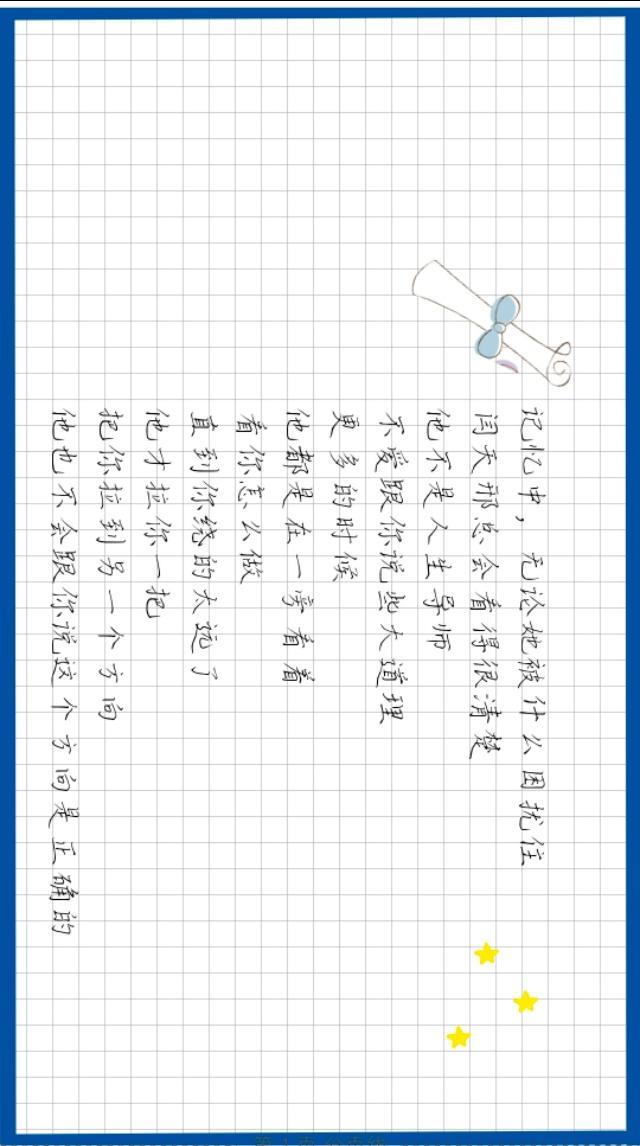 记忆中，无论她被什么困扰住
闫天邢总会看得很清楚
他不是人生导师
不爱跟你说些大道理
更多的时候
他都是在一旁看着
看你怎么做
直到你绕的太远了
他才拉你一把
把你拉到另一个方向
他也不会跟你说这个方向是正确的